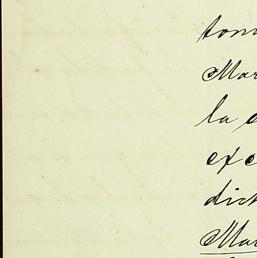 tom
Mar
la c
exc
dict
Mar